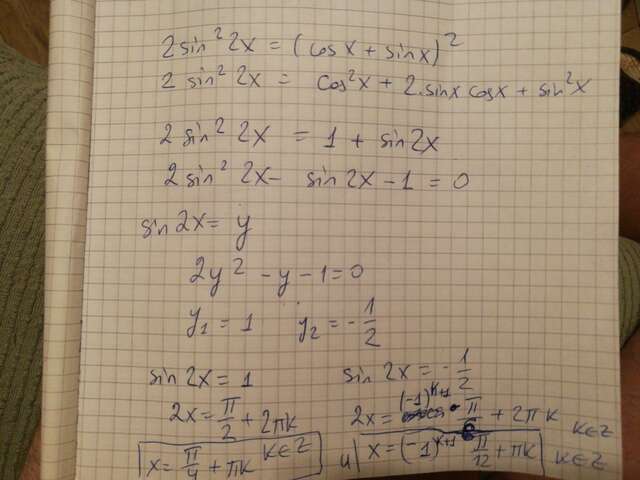 2 sin² 2x = (cos x + sin x)²
2 sin² 2x = cos²x + 2·sin x cos x + sin²x
2 sin² 2x = 1 + sin 2x
2 sin² 2x - sin 2x - 1 = 0
sin 2x = y
2y² - y - 1 = 0
y₁ = 1 y₂ = -1/2
sin 2x = 1 sin 2x = -1/2
2x = π/2 + 2πk 2x = (-1)^(k+1) · π/6 + 2πk k∈Z
x = π/4 + πk k∈Z и x = (-1)^(k+1) π/12 + πk k∈Z